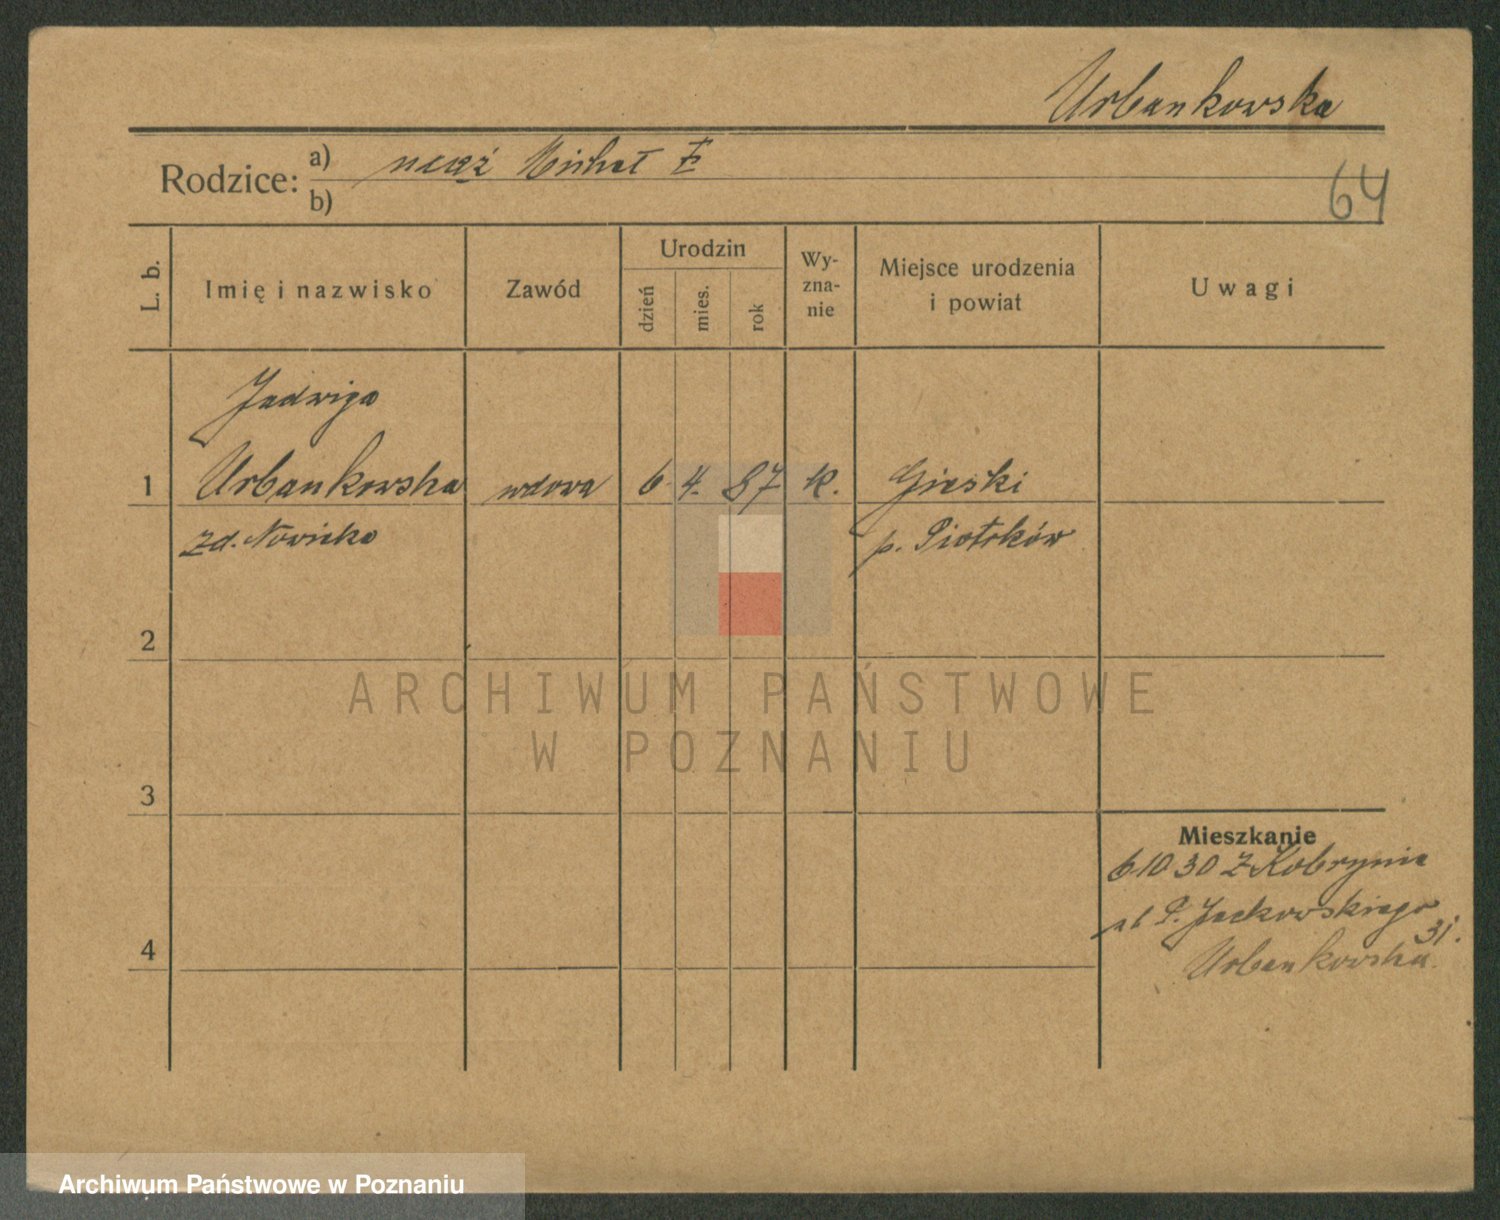 Urbankowska
Rodzice: a) mąż Michał
b)
64
L. b. Imię i nazwisko Zawód Urodzin dzień mies. rok Wy-zna-nie Miejsce urodzenia i powiat Uwagi
Jadwiga
1 Urbankowska wdowa 6. 4. 87 K. Gieski
zd. Nowicka p. Piotrków
2
3
4
Mieszkanie
6 10 30 z Kobrynia
ul P. Jackowskiego
31.
Urbankowska
ARCHIWUM PAŃSTWOWE
W POZNANIU
Archiwum Państwowe w Poznaniu